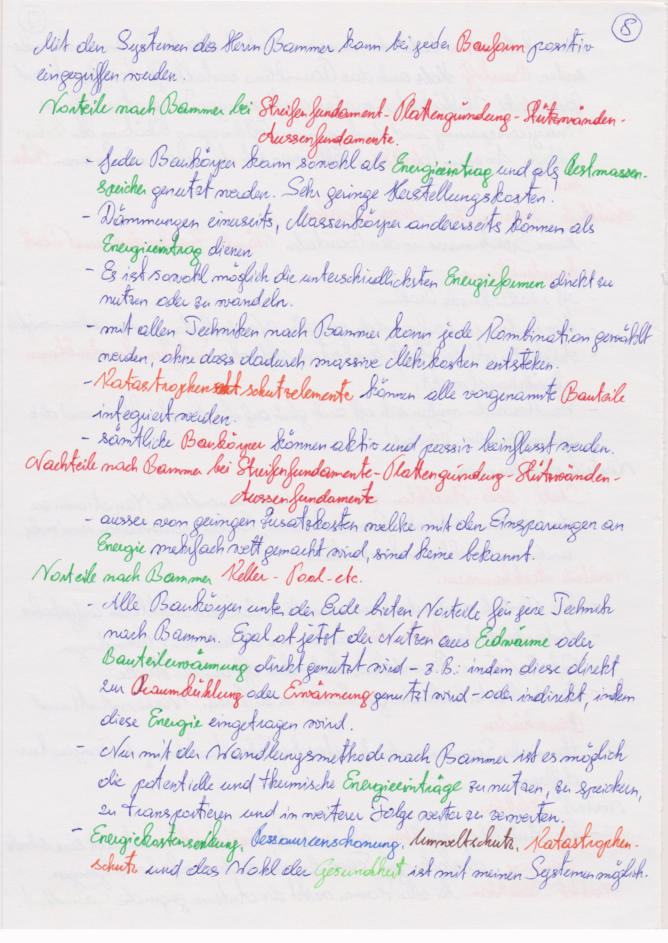 8
Mit den Systemen des Herrn Bammer kann bei jeder Bauform positiv
eingegriffen werden.
Vorteile nach Bammer bei Streifenfundament - Plattengründung - Stützwänden -
Aussenfundamente.
- Jeder Baukörper kann sowohl als Energieeintrag und als Restmassen-
speicher genutzt werden. Sehr geringe Herstellungskosten!
- Dämmungen einerseits, Massenkörper andererseits können als
Energieeintrag dienen
- Es ist sowohl möglich die unterschiedlichsten Energieformen direkt zu
nutzen oder zu wandeln.
- mit allen Techniken nach Bammer kann jede Kombination gewählt
werden, ohne dass dadurch massive Mehrkosten entstehen.
- Katastrophenschutzelemente können alle vorgenannte Bauteile
integriert werden.
- sämtliche Baukörper können aktiv und passiv beinflusst werden.
Nachteile nach Bammer bei Streifenfundamente - Plattengründung - Stützwänden -
Aussenfundamente
- ausser vom geringen Zusatzkosten welche mit den Einsparungen an
Energie mehrfach wett gemacht wird, sind keine bekannt.
Vorteile nach Bammer Keller - Pool - etc.
- Alle Baukörper unter der Erde bieten Vorteile für jene Technik
nach Bammer. Egal ob jetzt der Nutzen aus Erdwärme oder
Bauteilerwärmung direkt genutzt wird - z.B.: indem diese direkt
zur Raumkühlung oder Erwärmung genutzt wird - oder indirekt, indem
diese Energie eingetragen wird.
- Nur mit der Wandlungsmethode nach Bammer ist es möglich
die potentielle und thermische Energieeinträge zu nutzen, zu speichern,
zu transportieren und in weiterer Folge weiter zu verwerten.
- Energiekostensenkung, Ressourcenschonung, Umweltschutz, Katastrophen-
schutz und das Wohl der Gesundheit ist mit meinen Systemen möglich.